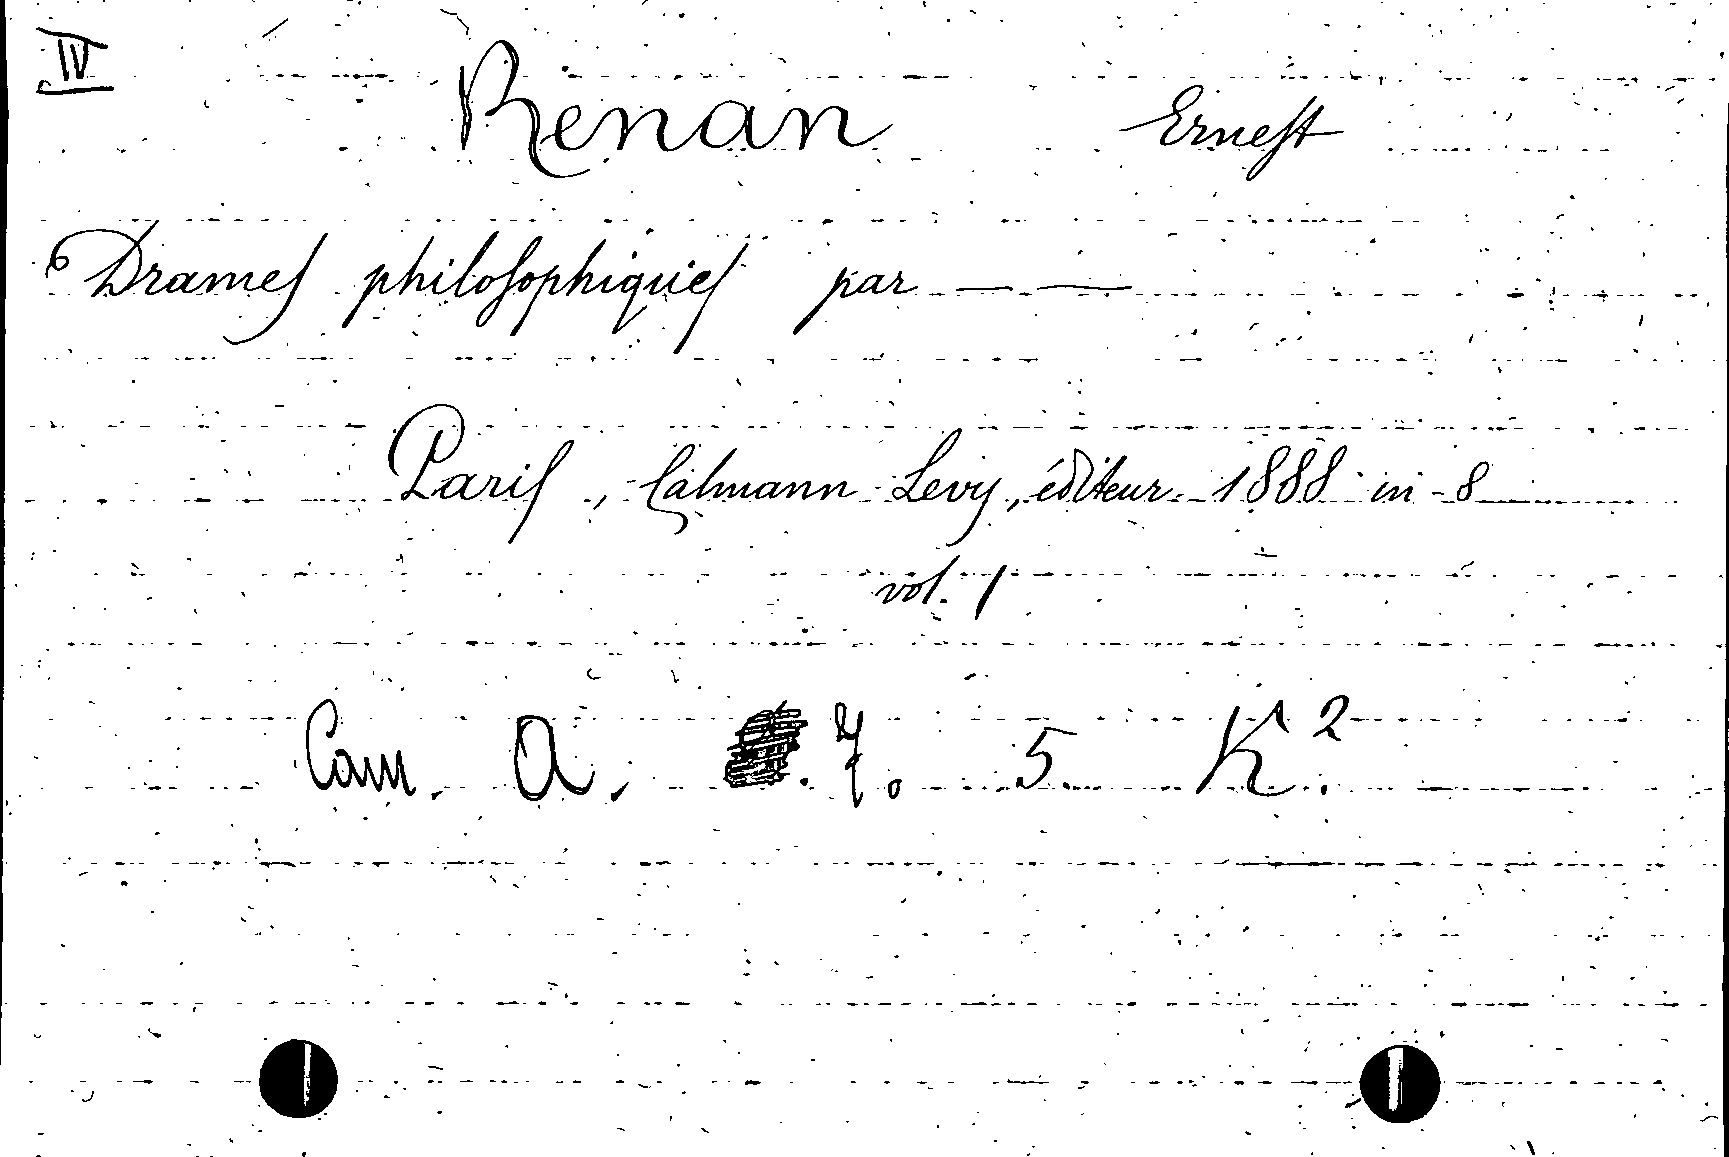 IV
Renan Ernest
Drames philosophiques par — —
Paris, Calmann Levy, éditeur 1888 in-8
vol. 1
Cam. A. 7. 5. K².